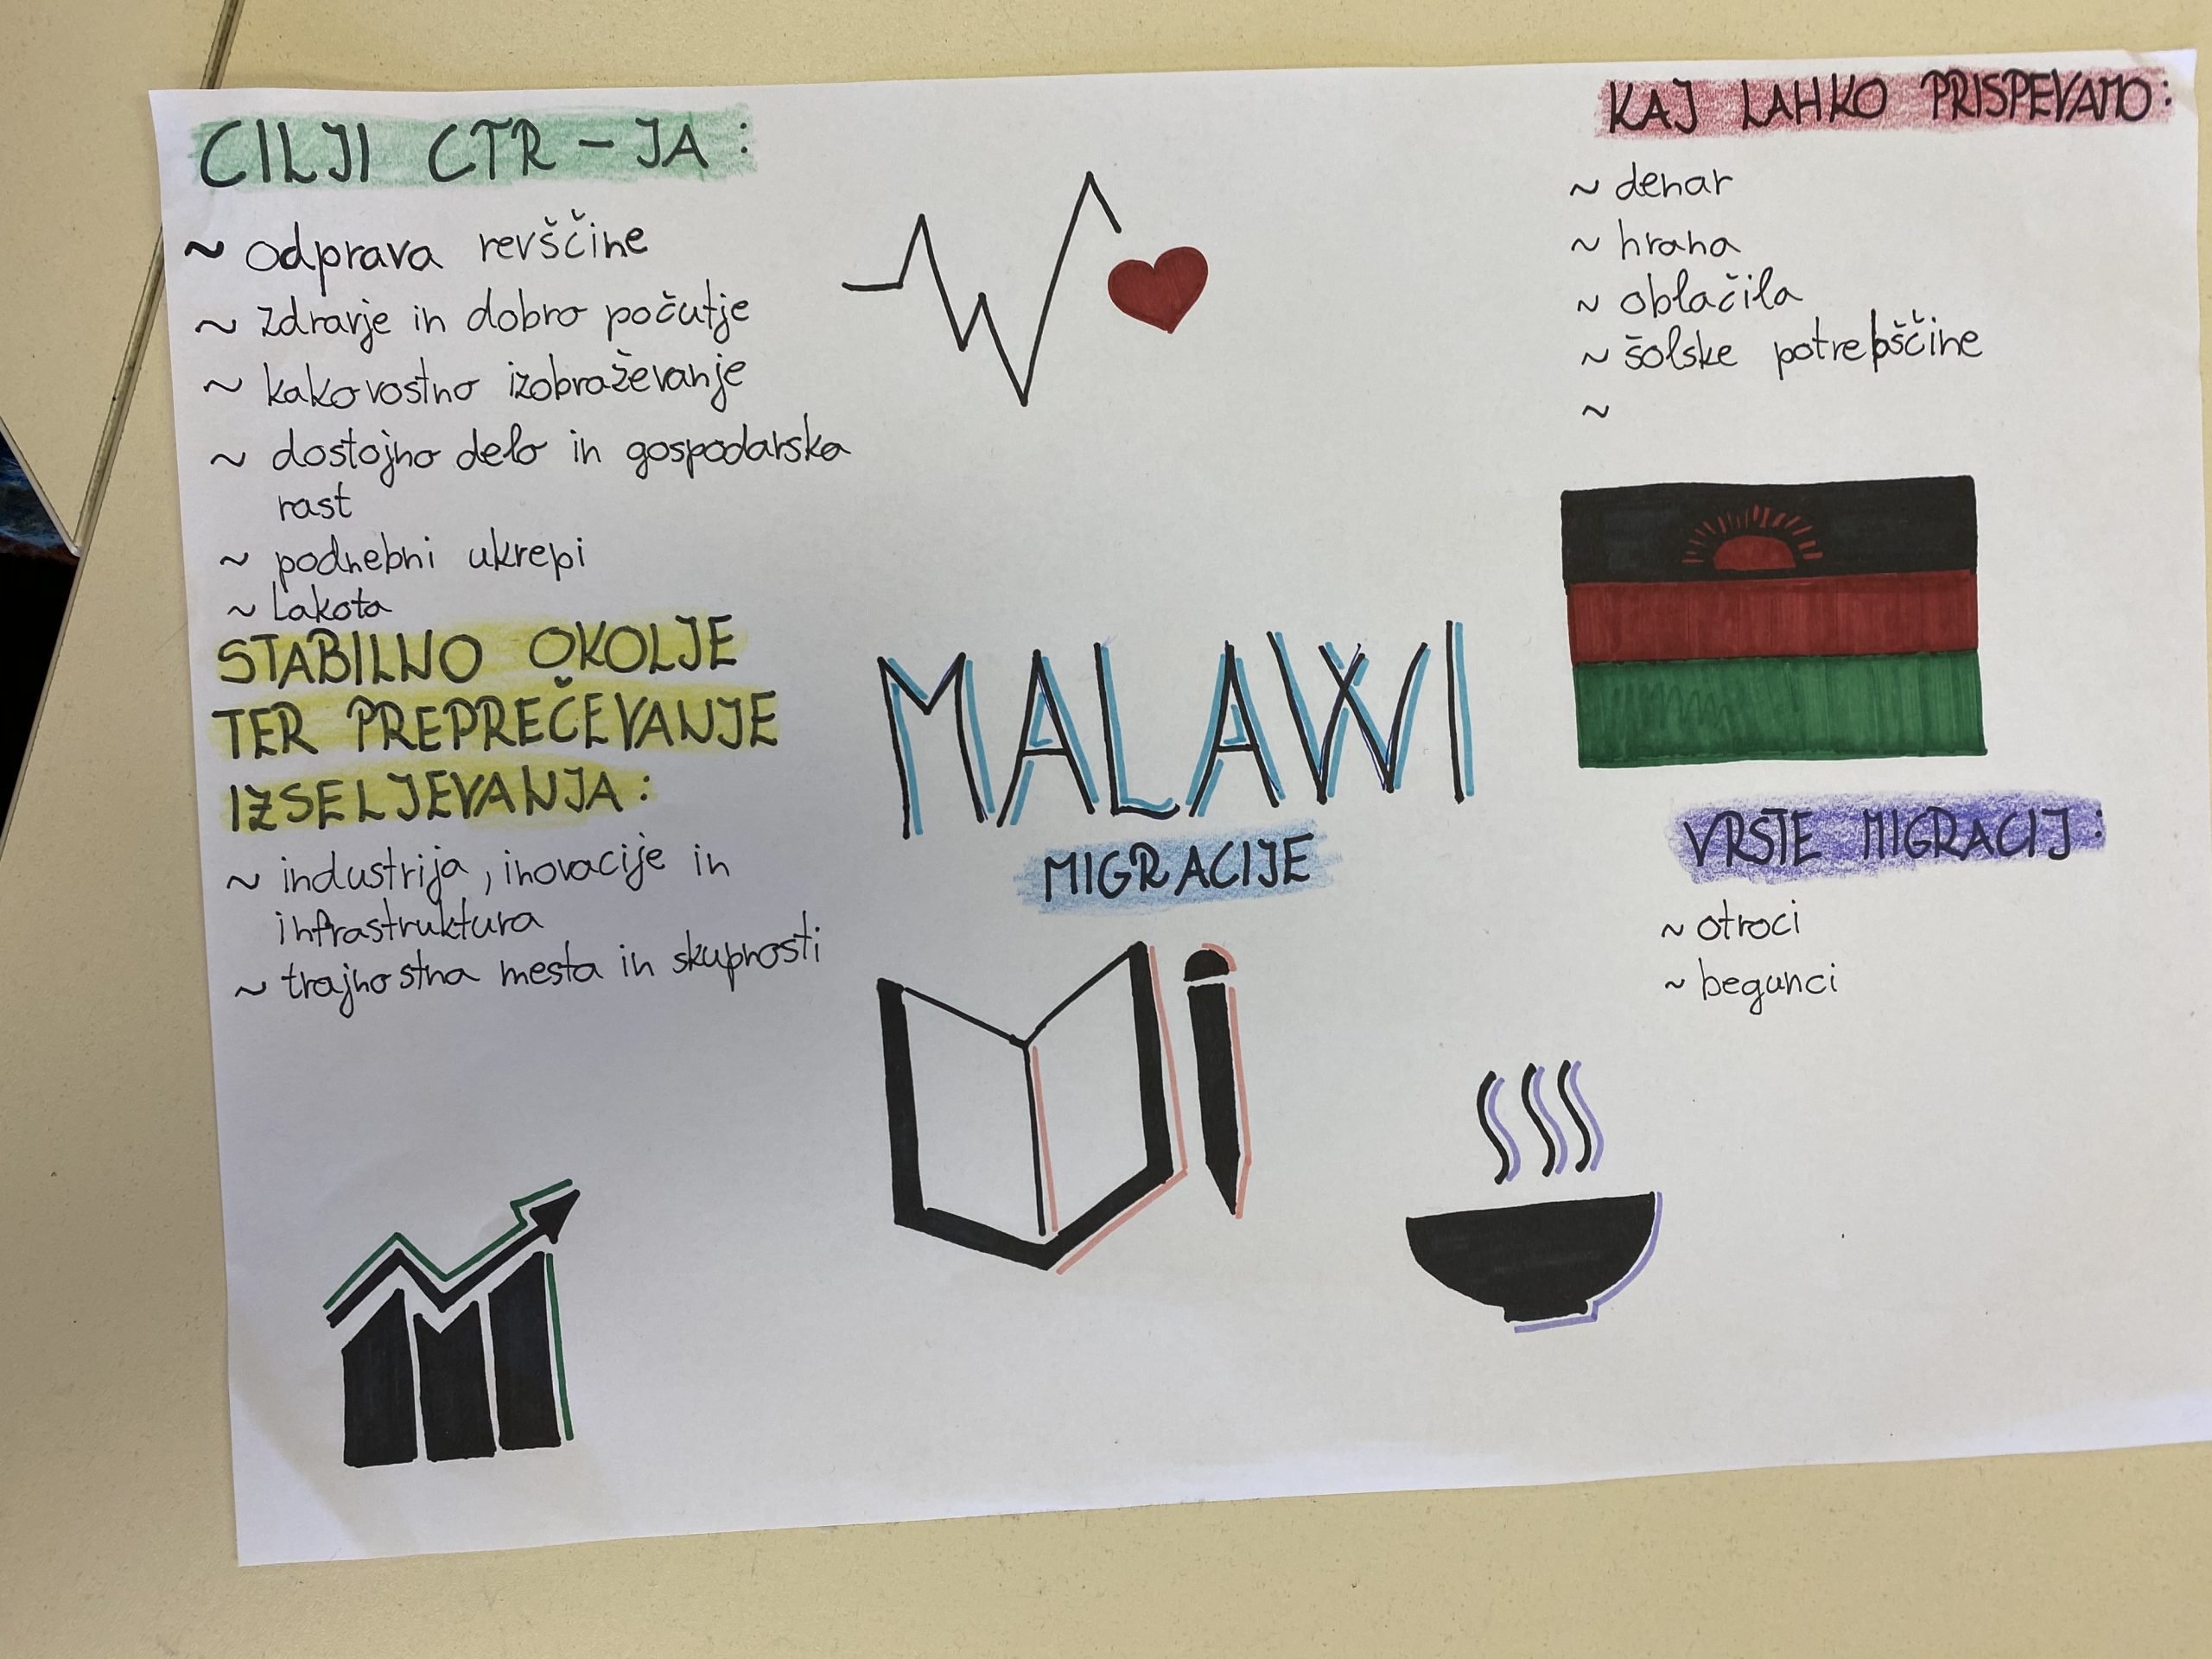 CILJI CTR - JA :
~ odprava revščine
~ zdravje in dobro počutje
~ kakovostno izobraževanje
~ dostojno delo in gospodarska
rast
~ podnebni ukrepi
~ Lakota
STABILNO OKOLJE
TER PREPREČEVANJE
IZSELJEVANJA :
~ industrija, inovacije in
infrastruktura
~ trajnostna mesta in skupnosti
MALAWI
MIGRACIJE
KAJ LAHKO PRISPEVAMO :
~ denar
~ hrana
~ oblačila
~ šolske potrebščine
~
VRSTE MIGRACIJ :
~ otroci
~ begunci